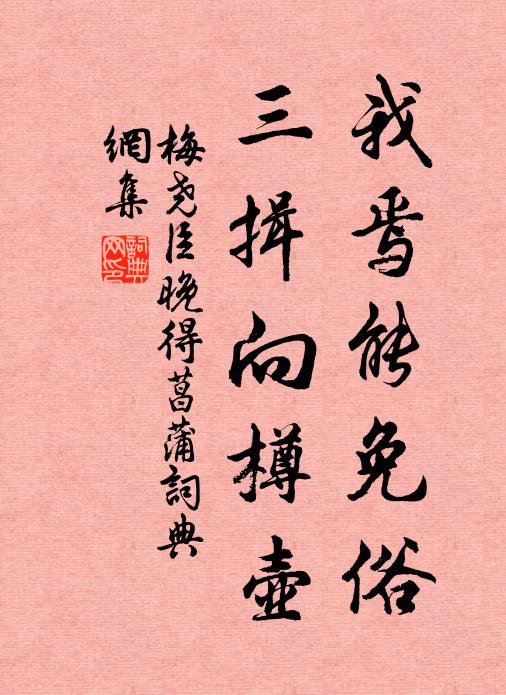 我焉能免俗
三揖向樽壺
梅堯臣晚得菖蒲詞典
網集
詞典网印